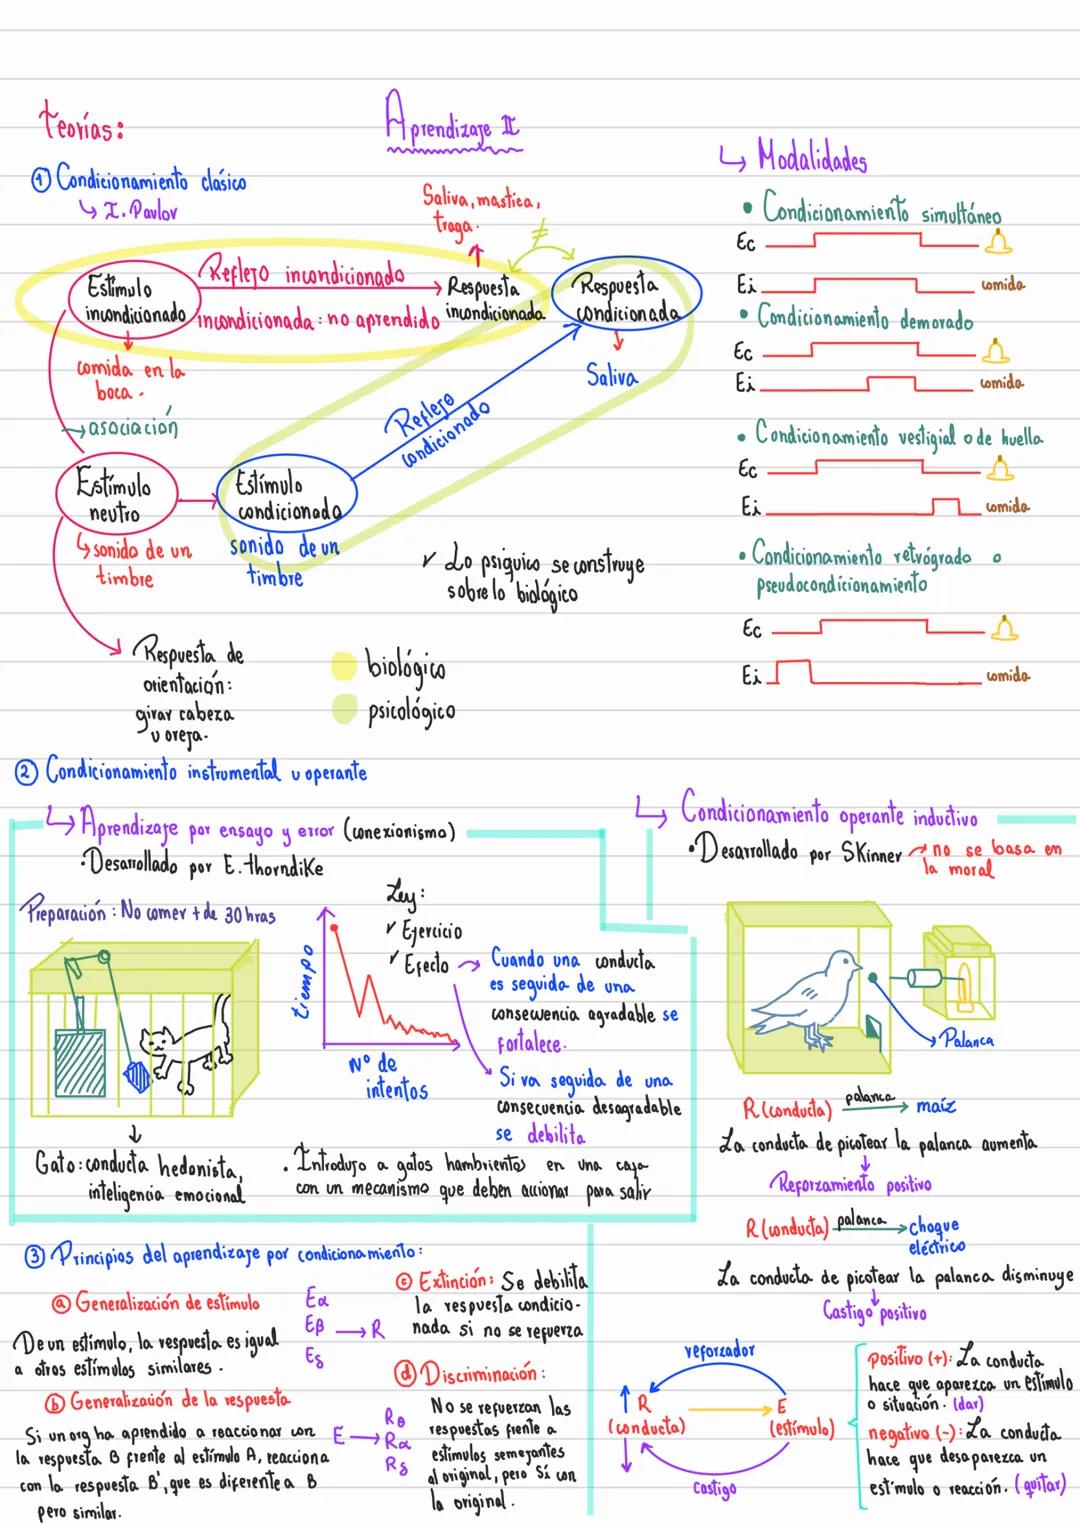 Teorías:
Aprendizaje II
① Condicionamiento clásico
↳ I. Pavlov
Saliva, mastica,
traga.
≠
Estímulo
incondicionado
Reflejo incondicionado
incondicionada: no aprendido
Respuesta
incondicionada
Respuesta
condicionada
comida en la
boca.
Saliva
→ asociación
Reflejo
condicionado
Estímulo
neutro
Estímulo
condicionado
↳ sonido de un
timbre
sonido de un
timbre
✓ Lo psíquico se construye
sobre lo biológico
Respuesta de
orientación:
girar cabeza
u oreja.
biológico
psicológico
↳ Modalidades
• Condicionamiento simultáneo
Ec
Ei comida
• Condicionamiento demorado
Ec
Ei comida
• Condicionamiento vestigial o de huella
Ec
Ei comida
• Condicionamiento retrógrado o
pseudocondicionamiento
Ec
Ei comida
② Condicionamiento instrumental u operante
↳ Aprendizaje por ensayo y error (conexionismo)
·Desarrollado por E. thorndike
Preparación: No comer + de 30 hras
tiempo
Nº de
intentos
Ley:
✓ Ejercicio
✓ Efecto → Cuando una conducta
es seguida de una
consecuencia agradable se
fortalece.
Si va seguida de una
consecuencia desagradable
se debilita
Gato: conducta hedonista,
inteligencia emocional
. Introdujo a gatos hambrientos en una caja
con un mecanismo que deben accionar para salir
↳ Condicionamiento operante inductivo
•Desarrollado por Skinner → no se basa en
la moral
Palanca
R (conducta) palanca → maíz
La conducta de picotear la palanca aumenta
↓
Reforzamiento positivo
R (conducta) palanca → choque
eléctrico
La conducta de picotear la palanca disminuye
↓
Castigo positivo
③ Principios del aprendizaje por condicionamiento:
ⓐ Generalización de estímulo
De un estímulo, la respuesta es igual
a otros estímulos similares.
Eα
Eβ → R
Eδ
ⓑ Generalización de la respuesta
Si un org ha aprendido a reaccionar con
la respuesta B frente al estímulo A, reacciona
con la respuesta B', que es diferente a B
pero similar.
Rθ
E → Rα
Rδ
ⓒ Extinción: Se debilita
la respuesta condicio-
nada si no se refuerza
ⓓ Discriminación:
No se refuerzan las
respuestas frente a
estímulos semejantes
al original, pero Sí con
la original.
reforzador
R
(conducta)
E
(estímulo)
castigo
positivo (+): La conducta
hace que aparezca un estímulo
o situación. (dar)
negativo (-): La conducta
hace que desaparezca un
est'mulo o reacción. (quitar)